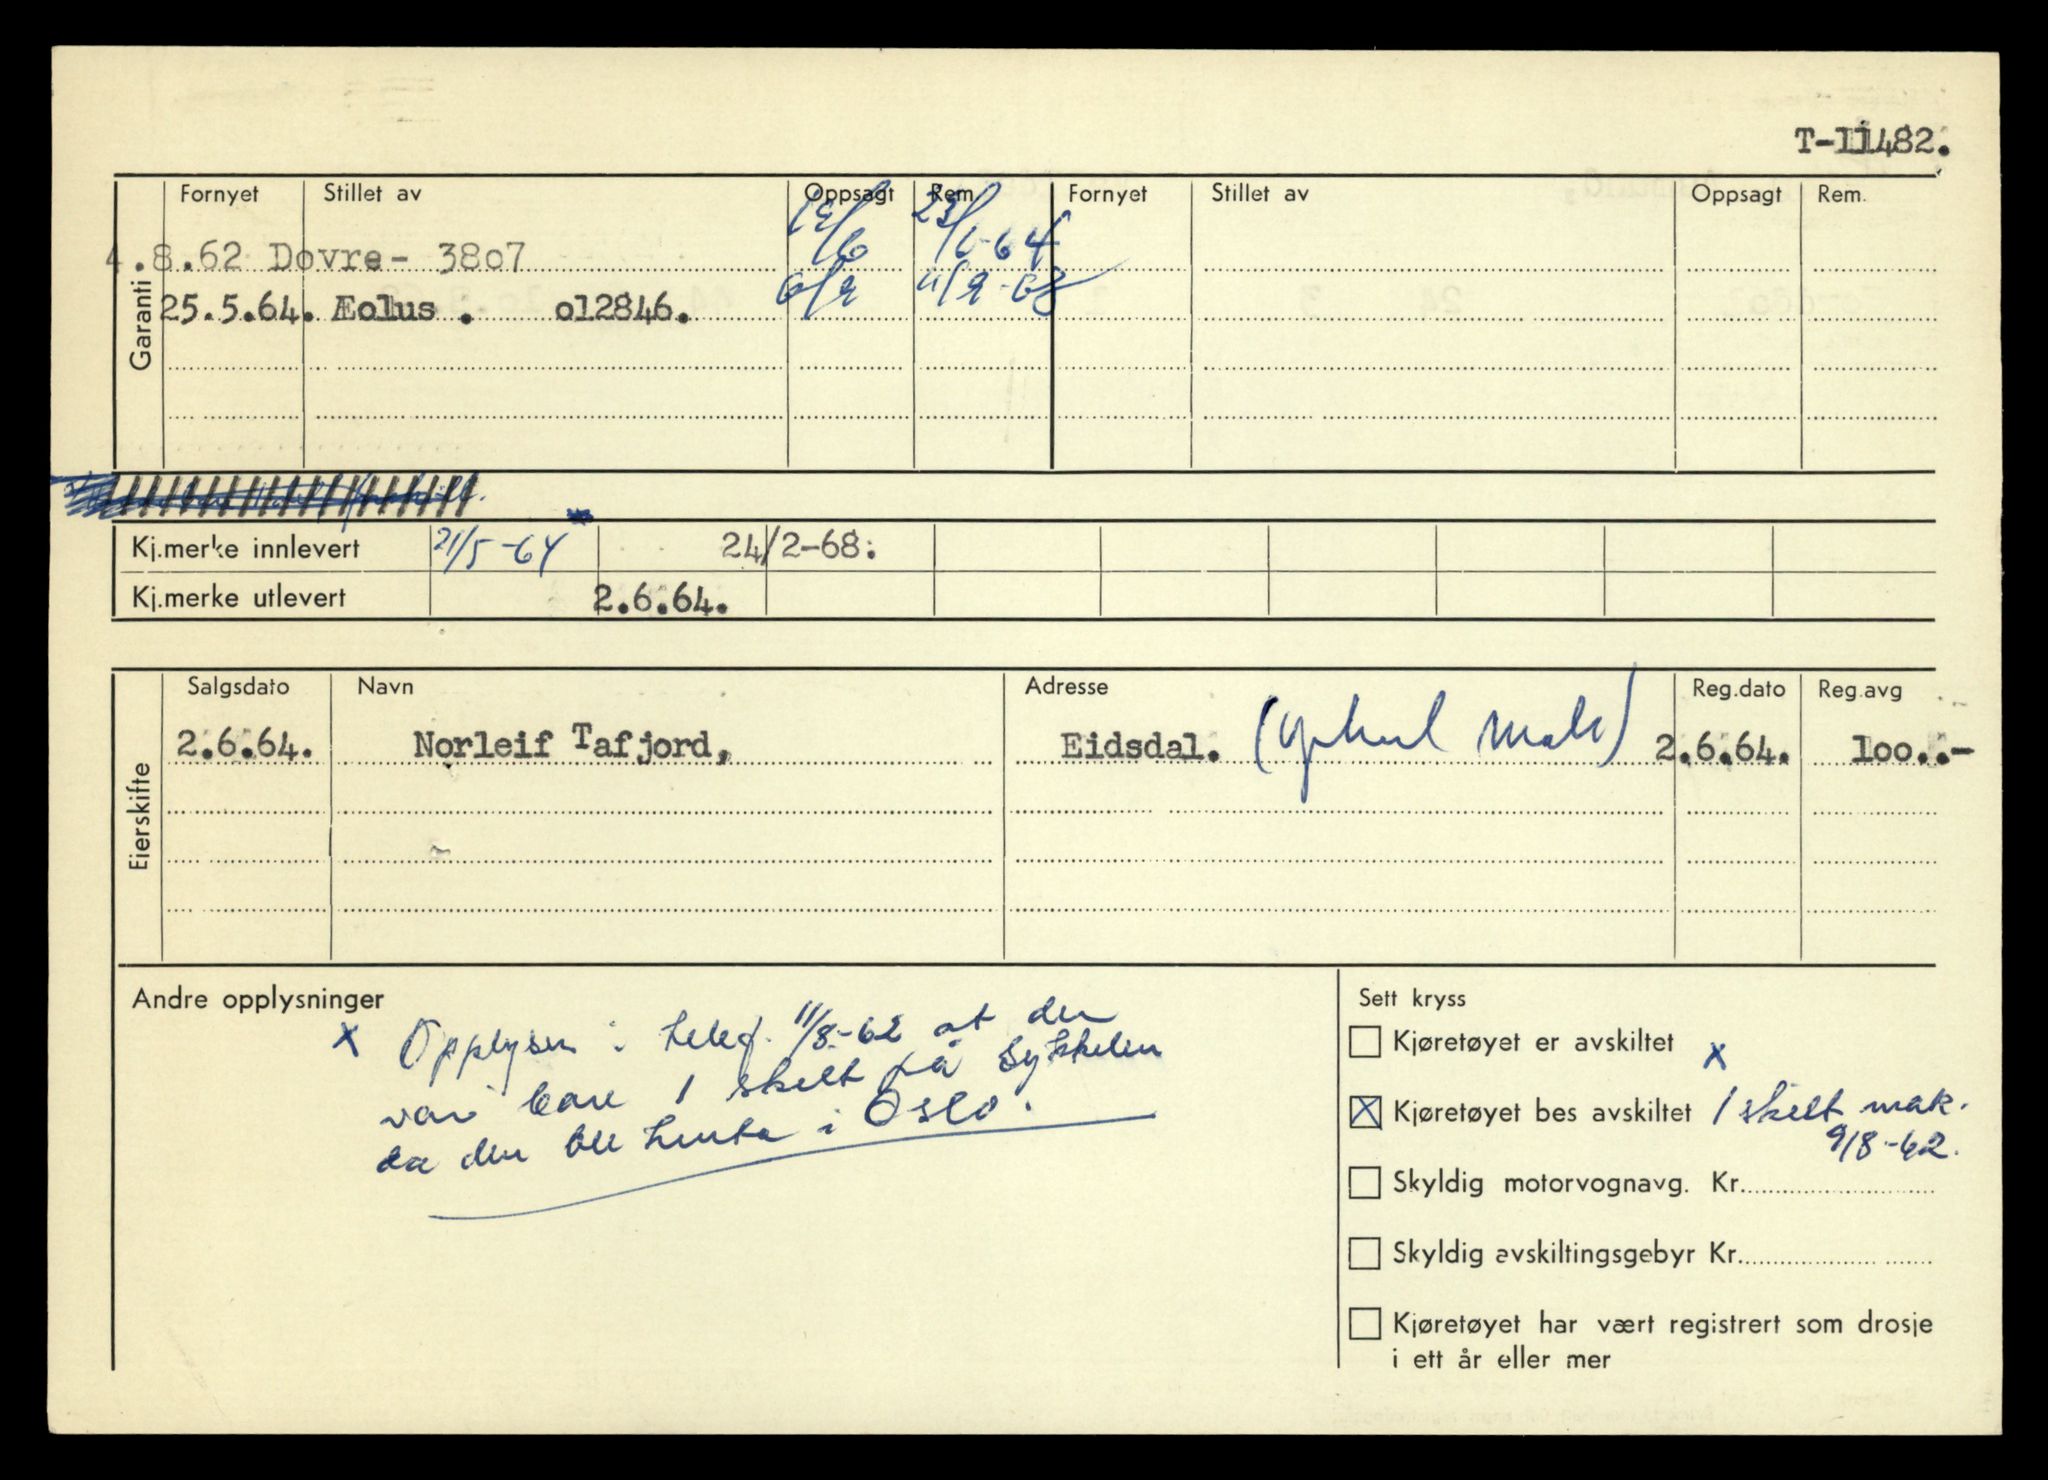 T-11482.
Garanti
Fornyet Stillet av Oppsagt Rem. Fornyet Stillet av Oppsagt Rem.
4.8.62 Dovre- 3807 12/6 23/6-64
25.5.64. Æolus . 012846. 6/2 11/2-68
Kj.merke innlevert 21/5-64 24/2-68.
Kj.merke utlevert 2.6.64.
Eierskifte
Salgsdato Navn Adresse Reg.dato Reg.avg
2.6.64. Norleif Tafjord, Eidsdal. 2.6.64. 100..-
Andre opplysninger
x Opplyser i telef. 11/8-62 at der
var bare 1 skilt på sykkelen
da den ble henta i Oslo.
Sett kryss
Kjøretøyet er avskiltet
x
Kjøretøyet bes avskiltet 1 skilt mak.
9/8-62.
Skyldig motorvognavg. Kr.
Skyldig avskiltingsgebyr Kr.
Kjøretøyet har vært registrert som drosje
i ett år eller mer